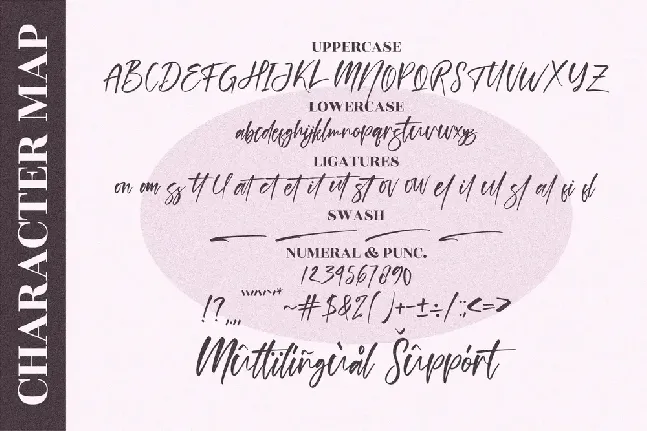 CHARACTER MAP
UPPERCASE
ABCDEFGHIJKLMNOPQRSTUVWXYZ
LOWERCASE
abcdefghijklmnopqrstuvwxyz
LIGATURES
on om ss tt ll at ct et it ut st ov ow el il ul sl al fi fl
SWASH
NUMERAL & PUNC.
1234567890
~#$&2()+-±÷/:;<=>
Mûltilíñgùål Šûppórt